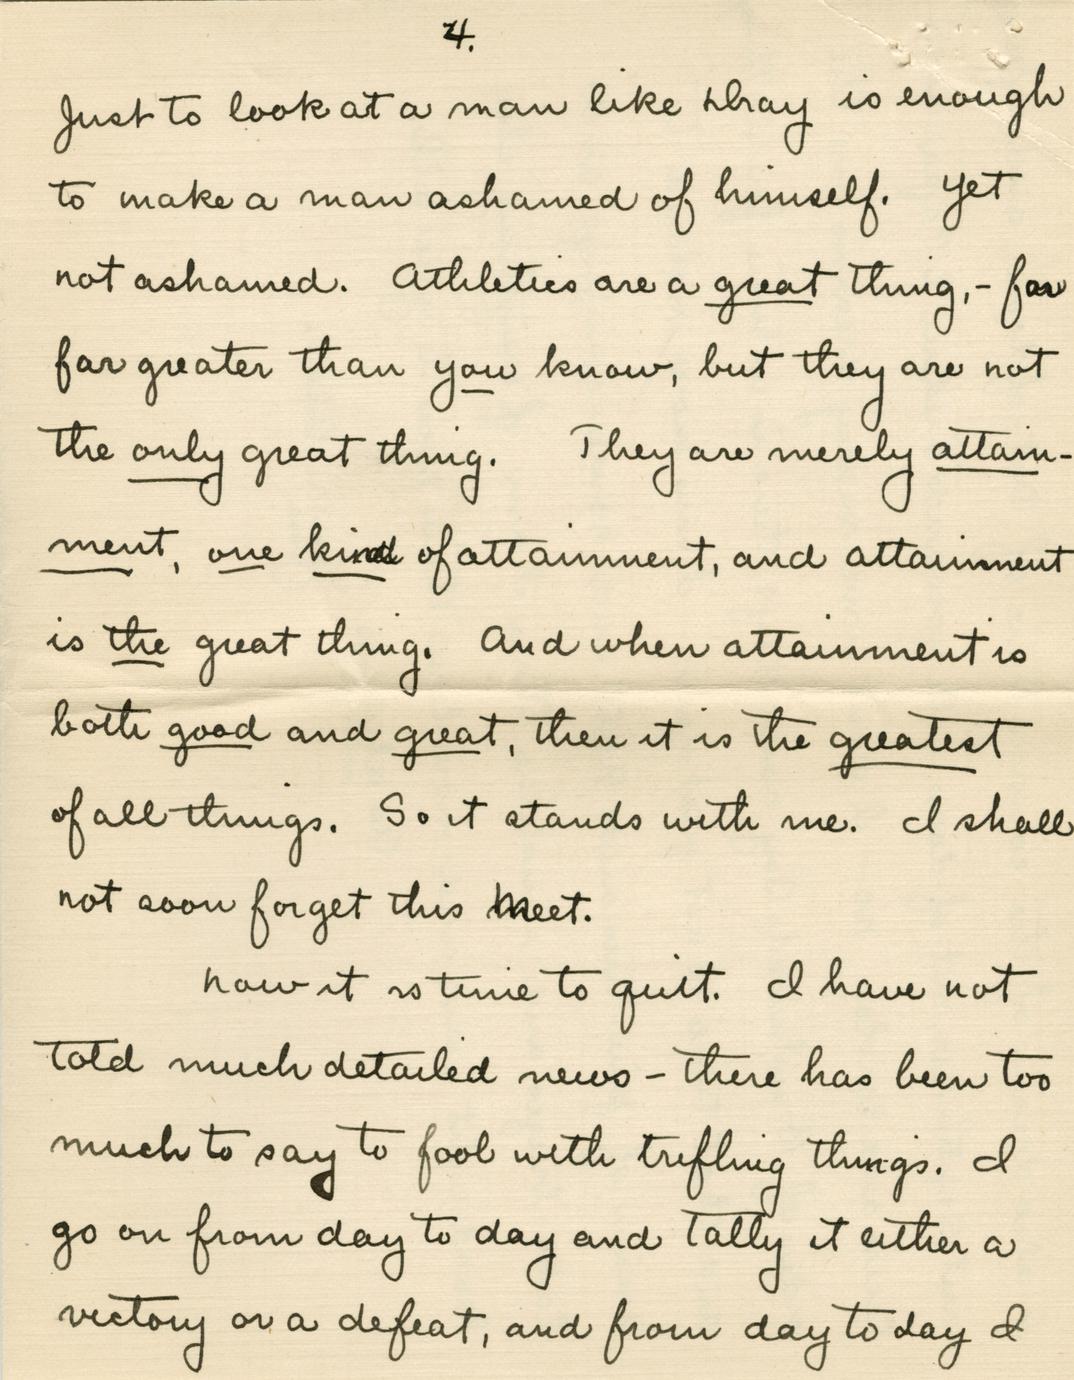 4.
Just to look at a man like Shay is enough
to make a man ashamed of himself. Yet
not ashamed. Athletics are a great thing,- far
far greater than you know, but they are not
the only great thing. They are merely attain-
ment, one kind of attainment, and attainment
is the great thing. And when attainment is
both good and great, then it is the greatest
of all things. So it stands with me. I shall
not soon forget this Meet.
Now it is time to quit. I have not
told much detailed news - there has been too
much to say to fool with trifling things. I
go on from day to day and tally it either a
victory or a defeat, and from day to day I